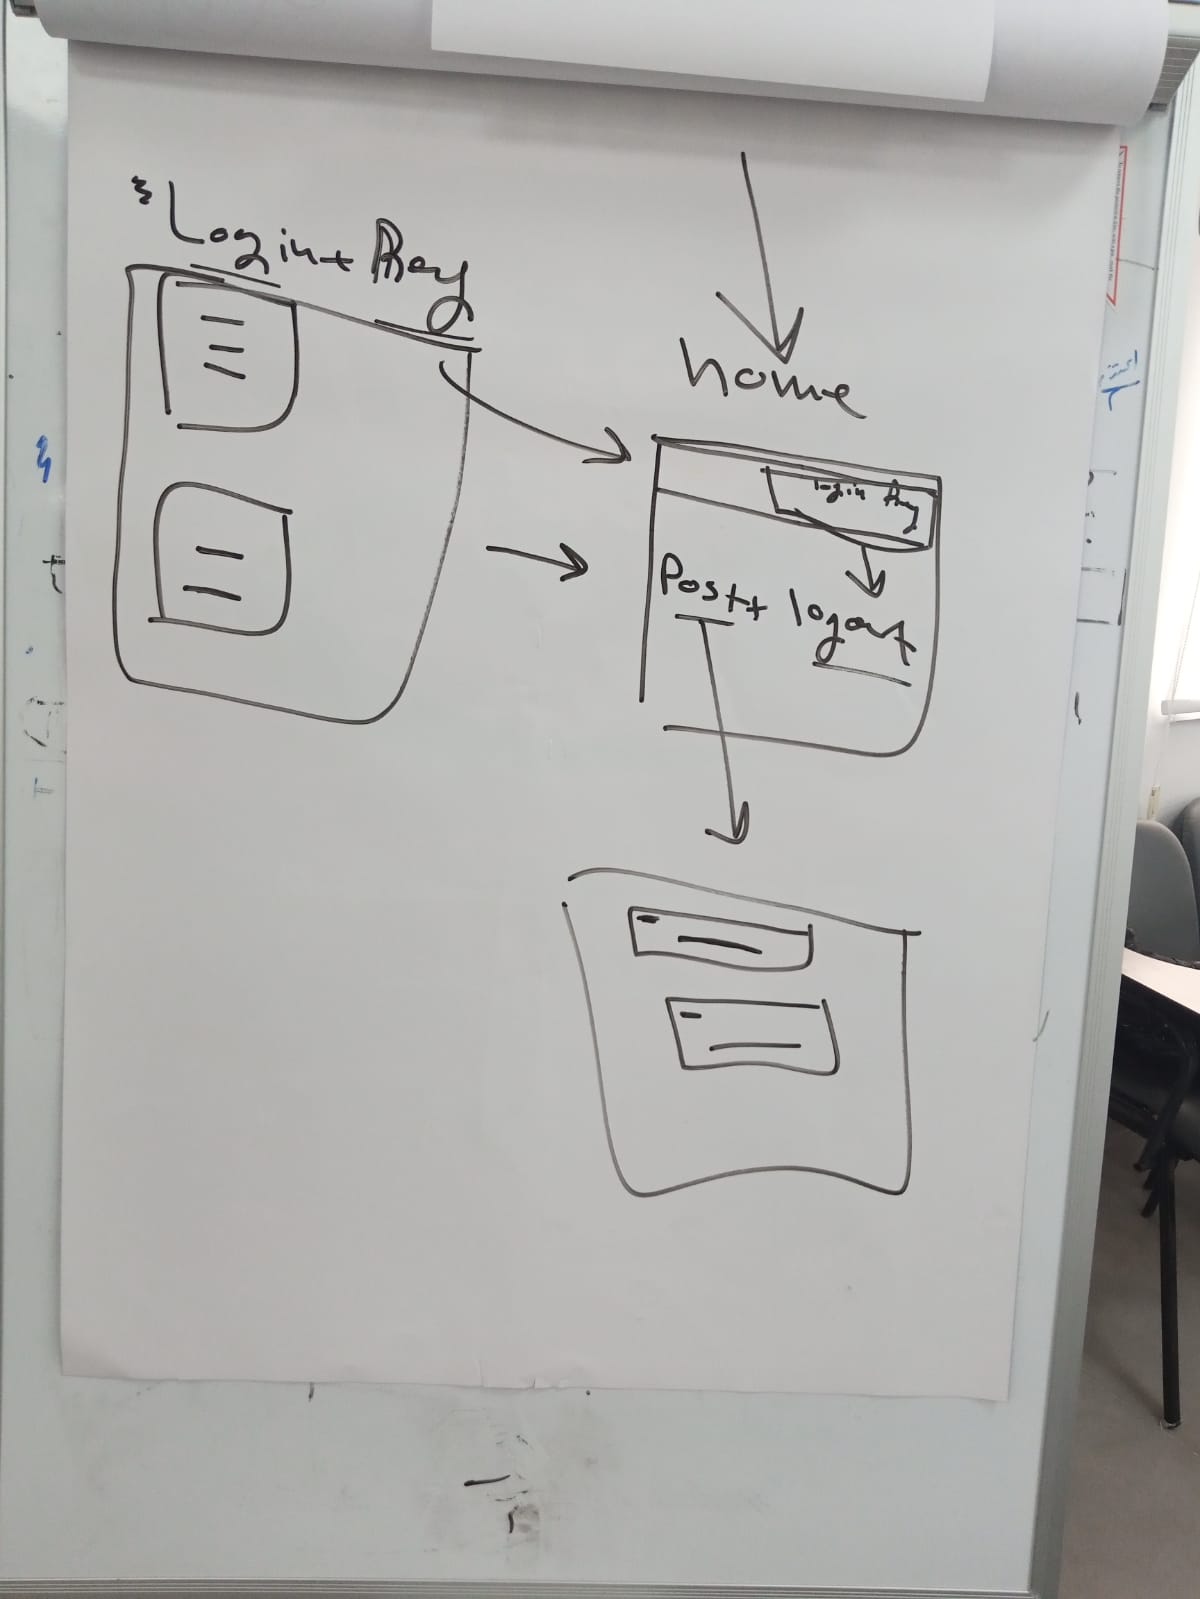 Login + Reg
home
login Reg
Post + logout